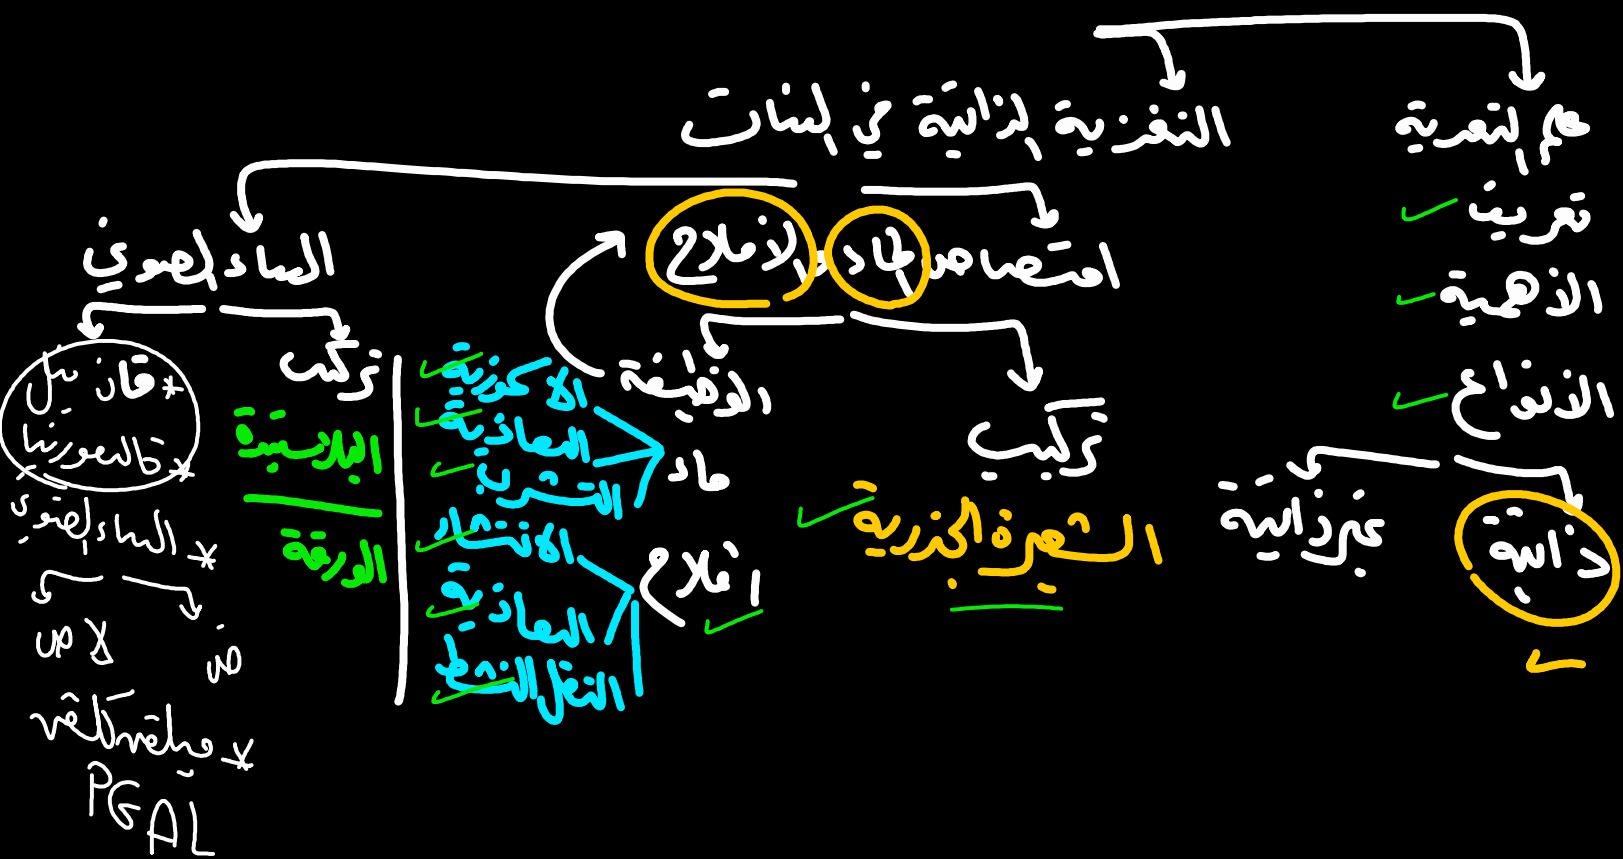 هم التغذية
تعريف
الأهمية
الأنواع
ذاتية
غير ذاتية
التغذية الذاتية في النبات
امتصاص الماء والأملاح
تركيب
الشعيرة الجذرية
الوظيفة
ماء
الاسموزية
النفاذية
التشرب
املاح
الانتشار
النفاذية
النقل النشط
البناء الضوئي
تركيب
البلاستيدة
الورقة
* فان نيل
*
* البناء الضوئي
ض
لا ض
*
PGAL